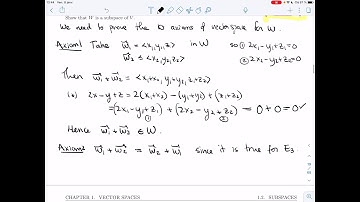 Show that W is a subspace of V.
We need to prove the 10 axioms of vectorspace for W.
Axiom1 Take w₁ = <x₁, y₁, z₁> in W so ① 2x₁-y₁+z₁=0
w₂ = <x₂, y₂, z₂> ② 2x₂-y₂+z₂=0
Then w₁ + w₂ = <x₁+x₂, y₁+y₂, z₁+z₂>
is 2x-y+z = 2(x₁+x₂) - (y₁+y₂) + (z₁+z₂)
= (2x₁-y₁+z₁) + (2x₂-y₂+z₂) = 0+0=0✓
① ②
Hence w₁+w₂ ∈ W.
Axiom2 w₁+w₂ = w₂+w₁ since it is true for E₃.
CHAPTER 1: VECTOR SPACES 1.2. SUBSPACES